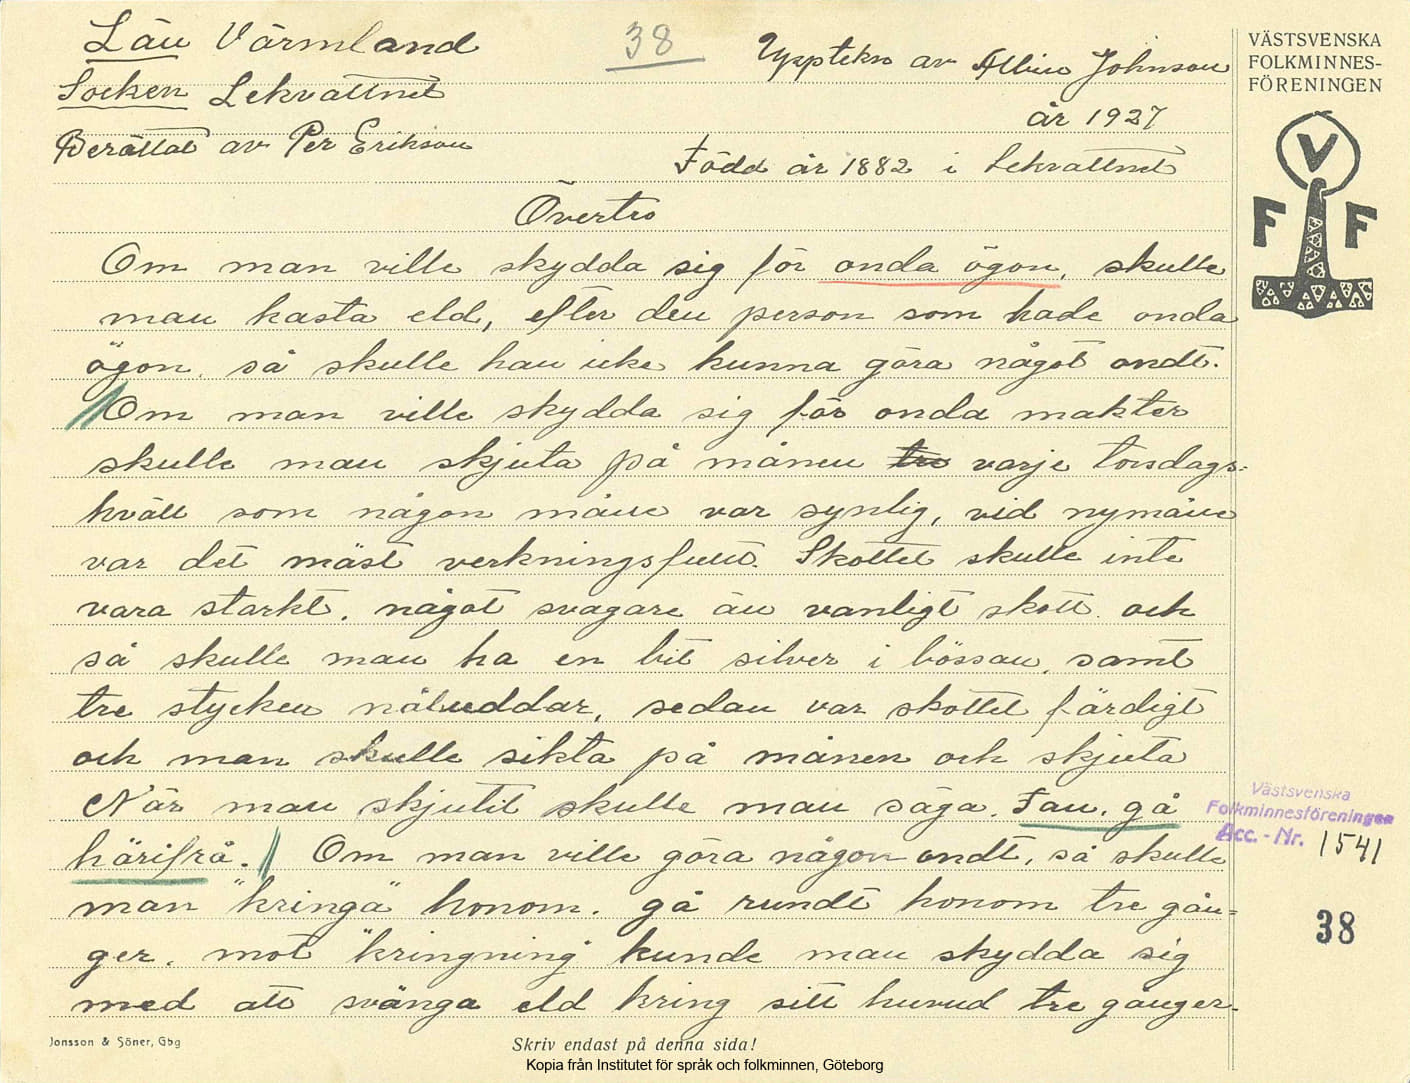 Län Värmland
38
Upptekn av Albin Johnson
VÄSTSVENSKA
FOLKMINNES-
FÖRENINGEN
Socken Lekvattnet
år 1927
Berättat av Per Erikson
Född år 1882 i Lekvattnet
V
F F
Övertro
Om man ville skydda sig för onda ögon, skulle
man kasta eld, efter den person som hade onda
ögon. så skulle han icke kunna göra något ondt.
Om man ville skydda sig för onda makter
skulle man skjuta på månen tre varje torsdags-
kväll som någon måne var synlig, vid nymåne
var det mäst verkningsfullt. Skottet skulle inte
vara starkt. något svagare än vanligt skott. och
så skulle man ha en bit silver i bössan, samt
tre stycken nåluddar, sedan var skottet färdigt
och man skulle sikta på månen och skjuta
När man skjutit skulle man säga. Fan. gå
härifrå. Om man ville göra någon ondt, så skulle
man "kringa" honom. gå rundt honom tre gån-
ger. mot "kringning" kunde man skydda sig
med att svänga eld kring sitt huvud tre gånger.
Västsvenska
Folkminnesföreningen
Acc.-Nr. 1541
38
Jonsson & Söner, Gbg
Skriv endast på denna sida!
Kopia från Institutet för språk och folkminnen, Göteborg